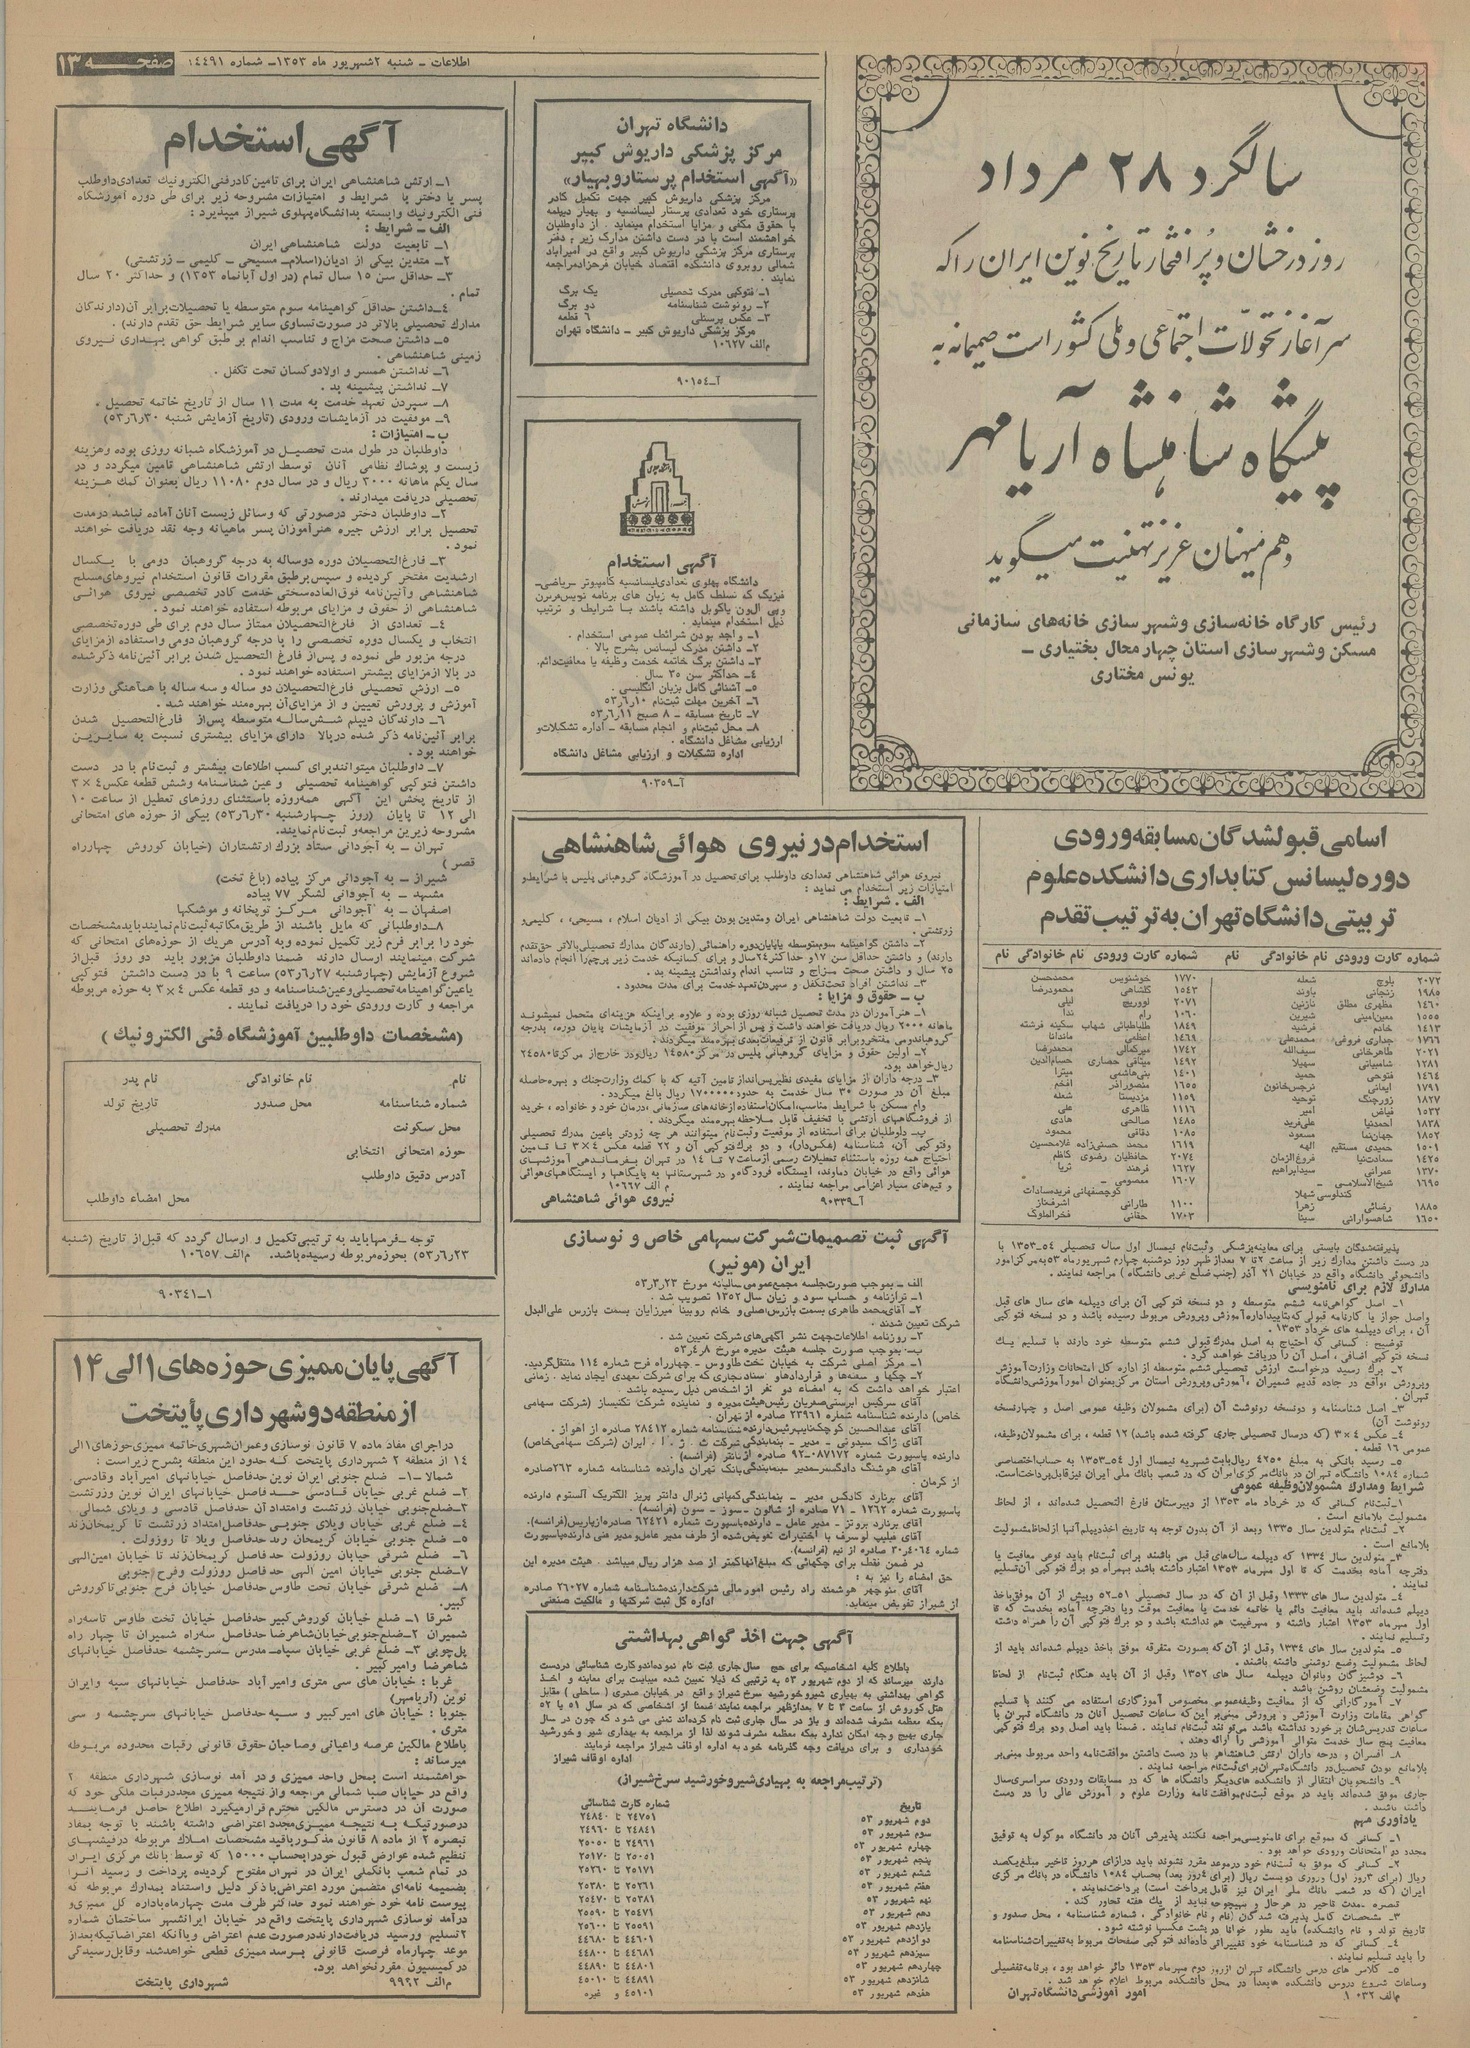 صفحه ۱۳
اطلاعات ـ شنبه ۲ شهریور ماه ۱۳۵۳ـ شماره ۱۴۴۹۱
سالگرد ۲۸ مرداد
روز درخشان و پُر افتخار تاریخ نوین ایران را که
سرآغاز تحولات اجتماعی و ملی کشور است صمیمانه به
پیشگاه شاهنشاه آریامهر
و هم میهنان عزیز تهنیت میگوید
رئیس کارگاه خانه‌سازی و شهرسازی خانه‌های سازمانی
مسکن و شهرسازی استان چهارمحال بختیاری ـ
یونس مختاری
دانشگاه تهران
مرکز پزشکی داریوش کبیر
«آگهی استخدام پرستار و بهیار»
مرکز پزشکی داریوش کبیر جهت تکمیل کادر
پرستاری خود تعدادی پرستار لیسانسیه و بهیار دیپلمه
با حقوق مکفی و مزایا استخدام مینماید . از داوطلبان
خواهشمند است با در دست داشتن مدارک زیر به دفتر
پرستاری مرکز پزشکی داریوش کبیر واقع در امیرآباد
شمالی روبروی دانشکده اقتصاد خیابان فرحزاد مراجعه
نمایند .
۱ـ فتوکپی مدرک تحصیلی یک برگ
۲ـ رونوشت شناسنامه دو برگ
۳ـ عکس پرسنلی ۶ قطعه
مرکز پزشکی داریوش کبیر ـ دانشگاه تهران
م‌الف ۱۰۶۲۷
آـ۹۰۱۵۴
آگهی استخدام
دانشگاه پهلوی تعدادی لیسانسیه کامپیوتر ـ ریاضی ـ
فیزیک که تسلط کامل به زبان های برنامه نویسی فرترن
وپی ال ون یا کوبل داشته باشند با شرایط و ترتیب
ذیل استخدام مینماید .
۱ـ واجد بودن شرائط عمومی استخدام .
۲ـ داشتن مدرک لیسانس بشرح بالا .
۳ـ داشتن برگ خاتمه خدمت وظیفه یا معافیت دائم.
۴ـ حداکثر سن ۳۵ سال .
۵ـ آشنائی کامل بزبان انگلیسی .
۶ـ آخرین مهلت ثبت‌نام ۵۳/۶/۱۰
۷ـ تاریخ مسابقه ـ ۸ صبح ۵۳/۶/۱۱
۸ـ محل ثبت‌نام و انجام مسابقه ـ اداره تشکیلات و
ارزیابی مشاغل دانشگاه .
اداره تشکیلات و ارزیابی مشاغل دانشگاه
آـ۹۰۳۵۹
آگهی استخدام
۱ـ ارتش شاهنشاهی ایران برای تامین کادر فنی الکترونیک تعدادی داوطلب
پسر یا دختر با شرایط و امتیازات مشروحه زیر برای طی دوره آموزشگاه
فنی الکترونیک وابسته بدانشگاه پهلوی شیراز میپذیرد :
الف ـ شرایط :
۱ـ تابعیت دولت شاهنشاهی ایران
۲ـ متدین بیکی از ادیان (اسلام ـ مسیحی ـ کلیمی ـ زرتشتی)
۳ـ حداقل سن ۱۵ سال تمام (در اول آبانماه ۱۳۵۳) و حداکثر ۲۰ سال
تمام .
۴ـ داشتن حداقل گواهینامه سوم متوسطه یا تحصیلات برابر آن (دارندگان
مدارک تحصیلی بالاتر در صورت تساوی سایر شرایط حق تقدم دارند) .
۵ـ داشتن صحت مزاج و تناسب اندام بر طبق گواهی بهداری نیروی
زمینی شاهنشاهی .
۶ـ نداشتن همسر و اولاد و کسان تحت تکفل .
۷ـ نداشتن پیشینه بد .
۸ـ سپردن تعهد خدمت به مدت ۱۱ سال از تاریخ خاتمه تحصیل .
۹ـ موفقیت در آزمایشات ورودی (تاریخ آزمایش شنبه ۵۳/۶/۳۰)
ب ـ امتیازات :
داوطلبان در طول مدت تحصیل در آموزشگاه شبانه روزی بوده و هزینه
زیست و پوشاک نظامی آنان توسط ارتش شاهنشاهی تامین میگردد و در
سال یکم ماهانه ۳۰۰۰ ریال و در سال دوم ۱۱۰۸۰ ریال بعنوان کمک هزینه
تحصیلی دریافت میدارند .
۲ـ داوطلبان دختر درصورتی که وسائل زیست آنان آماده نباشد درمدت
تحصیل برابر ارزش جیره هنرآموزان پسر ماهیانه وجه نقد دریافت خواهند
نمود .
۳ـ فارغ‌التحصیلان دوره دوساله به درجه گروهبان دومی با یکسال
ارشدیت مفتخر گردیده و سپس برطبق مقررات قانون استخدام نیروهای مسلح
شاهنشاهی و آئین‌نامه فوق‌العاده سختی خدمت کادر تخصصی نیروی هوائی
شاهنشاهی از حقوق و مزایای مربوطه استفاده خواهند نمود .
۴ـ تعدادی از فارغ‌التحصیلان ممتاز سال دوم برای طی دوره تخصصی
انتخاب و یکسال دوره تخصصی را با درجه گروهبان دومی و استفاده از مزایای
درجه مزبور طی نموده و پس از فارغ التحصیل شدن برابر آئین‌نامه ذکر شده
در بالا از مزایای بیشتر استفاده خواهند نمود .
۵ـ ارزش تحصیلی فارغ‌التحصیلان دو ساله و سه ساله با هم‌آهنگی وزارت
آموزش و پرورش تعیین و از مزایای آن بهره‌مند خواهند شد .
۶ـ دارندگان دیپلم شش‌ساله متوسطه پس از فارغ‌التحصیل شدن
برابر آئین‌نامه ذکر شده دربالا دارای مزایای بیشتری نسبت به سایرین
خواهند بود .
۷ـ داوطلبان میتوانند برای کسب اطلاعات بیشتر و ثبت‌نام با در دست
داشتن فتوکپی گواهینامه تحصیلی و عین شناسنامه و شش قطعه عکس ۴ × ۳
از تاریخ پخش این آگهی همه‌روزه باستثنای روزهای تعطیل از ساعت ۱۰
الی ۱۲ تا پایان (روز چهارشنبه ۵۳/۶/۳۰) بیکی از حوزه های امتحانی
مشروحه زیرین مراجعه و ثبت‌نام نمایند.
تهران ـ به آجودانی ستاد بزرگ ارتشتاران (خیابان کوروش چهارراه
قصر )
شیراز ـ به آجودانی مرکز پیاده (باغ تخت)
مشهد ـ به آجودانی لشگر ۷۷ پیاده
اصفهان ـ به آجودانی مرکز توپخانه و موشکها
۸ـ داوطلبانی که مایل باشند از طریق مکاتبه ثبت‌نام نمایند باید مشخصات
خود را برابر فرم زیر تکمیل نموده و به آدرس هریک از حوزه‌های امتحانی که
شرکت مینمایند ارسال دارند ضمنا داوطلبان مزبور باید دو روز قبل از
شروع آزمایش (چهارشنبه ۵۳/۶/۲۷) ساعت ۹ با در دست داشتن فتوکپی
یا عین گواهینامه تحصیلی و عین شناسنامه و دو قطعه عکس ۴ × ۳ به حوزه مربوطه
مراجعه و کارت ورودی خود را دریافت نمایند .
(مشخصات داوطلبین آموزشگاه فنی الکترونیک )
نام نام خانوادگی نام پدر
شماره شناسنامه محل صدور تاریخ تولد
محل سکونت مدرک تحصیلی
حوزه امتحانی انتخابی
آدرس دقیق داوطلب
محل امضاء داوطلب
توجه ـ فرمها باید به ترتیبی تکمیل و ارسال گردد که قبل از تاریخ (شنبه
۵۳/۶/۲۳) بحوزه مربوطه رسیده باشد. م‌الف ۱۰۶۵۷
۱ـ۹۰۳۴۱
استخدام در نیروی هوائی شاهنشاهی
نیروی هوائی شاهنشاهی تعدادی داوطلب برای تحصیل در آموزشگاه گروهبانی پلیس با شرایط و
امتیازات زیر استخدام می نماید :
الف . شرایط :
۱ـ تابعیت دولت شاهنشاهی ایران و متدین بودن بیکی از ادیان اسلام ، مسیحی ، کلیمی و
زرتشتی .
۲ـ داشتن گواهینامه سوم متوسطه یا پایان دوره راهنمائی (دارندگان مدارک تحصیلی بالاتر حق تقدم
دارند) و داشتن حداقل سن ۱۷ و حداکثر ۲۴ سال و برای کسانیکه خدمت زیر پرچم را انجام داده‌اند
۲۵ سال و داشتن صحت مزاج و تناسب اندام و نداشتن پیشینه بد .
۳ـ نداشتن افراد تحت تکفل و سپردن تعهد خدمت برای مدت محدود .
ب ـ حقوق و مزایا :
۱ـ هنرآموزان در مدت تحصیل شبانه روزی بوده و علاوه براینکه هزینه‌ای متحمل نمیشوند
ماهانه ۲۰۰۰ ریال دریافت خواهند داشت و پس از احراز موفقیت در آزمایشات پایان دوره، بدرجه
گروهباندومی مفتخر و برابر قانون از ترفیعات بعدی بهره‌مند میگردند .
۲ـ اولین حقوق و مزایای گروهبانی پلیس در مرکز ۱۴۵۸۰ ریال و در خارج از مرکز تا ۲۴۵۸۰
ریال خواهد بود.
۳ـ درجه داران از مزایای مفیدی نظیر پس‌انداز تامین آتیه که با کمک وزارت جنگ و بهره حاصله
مبلغ آن در صورت ۳۰ سال خدمت به حدود ۱۷۰۰۰۰۰ ریال بالغ میگردد .
وام مسکن با شرایط مناسب، امکان استفاده از خانه‌های سازمانی ، درمان خود و خانواده ، خرید
از فروشگاههای ارتشی با تخفیف قابل ملاحظه بهره‌مند میگردند .
پ ـ داوطلبان برای استفاده از موقعیت و ثبت‌نام میتوانند هر چه زودتر با عین مدرک تحصیلی
و فتوکپی آن، شناسنامه (عکس‌دار)، و دو برگ فتوکپی آن و ۲۲ قطعه عکس ۴ × ۳ تا تامین
احتیاج همه روزه باستثناء تعطیلات رسمی از ساعت ۷ تا ۱۴ در تهران بفرماندهی آموزشهای
هوائی واقع در خیابان دماوند، ایستگاه فرودگاه و در شهرستانها به پایگاهها و ایستگاههای هوائی
و تیم‌های سیار اعزامی مراجعه نمایند . م الف ۱۰۶۶۷
آـ۹۰۳۳۹ نیروی هوائی شاهنشاهی
آگهی ثبت تصمیمات شرکت سهامی خاص و نوسازی
ایران (مونیر)
الف ـ بموجب صورت جلسه مجمع عمومی سالیانه مورخ ۵۳/۳/۲۳
۱ـ ترازنامه و حساب سود و زیان سال ۱۳۵۲ تصویب شد .
۲ـ آقای محمد طاهری بسمت بازرس اصلی و خانم روبینا میرزایان بسمت بازرس علی‌البدل
شرکت تعیین شدند .
۳ـ روزنامه اطلاعات جهت نشر آگهی‌های شرکت تعیین شد .
ب ـ بموجب صورت جلسه هیئت مدیره مورخ ۵۳/۴/۸
۱ـ مرکز اصلی شرکت به خیابان تخت طاووس ـ چهارراه فرح شماره ۱۱۴ منتقل گردید.
اعتبار خواهد داشت که به امضاء دو نفر از اشخاص ذیل رسیده باشد .
خاص) دارنده شناسنامه شماره ۲۳۹۶۱ صادره از تهران .
آقای عبدالحسین کوچک‌نایب رئیس دارنده شناسنامه شماره ۲۸۴۱۲ صادره از اهواز .
دارنده پاسپورت شماره ۰۸۷۱۷۲ـ۹۲ صادره از نانتر (فرانسه) .
از کرمان .
در ضمن نقط برای چکهائی که مبلغ آنها کمتر از صد هزار ریال میباشد . هیئت مدیره این
حق امضاء را نیز به :
آقای منوچهر هوشمند راد رئیس امور مالی شرکت دارنده شناسنامه شماره ۲۶۰۲۷ صادره
از شیراز تفویض مینماید. اداره کل ثبت شرکتها و مالکیت صنعتی
آگهی جهت اخذ گواهی بهداشتی
باطلاع کلیه اشخاصیکه برای حج سال جاری ثبت نام نموده‌اند و کارت شناسائی دردست
دارند میرساند که از دوم شهریور ۵۳ به ترتیبی که ذیلا تعیین شده میبایست برای معاینه و اخذ
گواهی بهداشتی به بهیاری شیروخورشید سرخ شیراز واقع در خیابان صدری (ساحلی ) مقابل
هتل کوروش از ساعت ۳ تا ۷ بعدازظهر مراجعه نمایند ضمنا از اشخاصی که در سال ۵۱ یا ۵۲
بمکه معظمه مشرف شده‌اند و باز در سال جاری ثبت نام کرده‌اند تمنی می شود که چون در سال
جاری بهیچ وجه امکان ندارد بمکه معظمه مشرف شوند لذا از مراجعه به بهداری شیر و خورشید
خودداری و برای دریافت وجه گذرنامه خود به اداره اوقاف شیراز مراجعه فرمایند
اداره اوقاف شیراز
(ترتیب مراجعه به بهیاری شیروخورشید سرخ شیراز)
تاریخ شماره کارت شناسائی
دوم شهریور ۵۳ ۲۴۷۵۱ تا ۲۴۸۴۰
سوم شهریور ۵۳ ۲۴۸۴۱ تا ۲۴۹۶۰
چهارم شهریور ۵۳ ۲۴۹۶۱ تا ۲۵۰۵۰
پنجم شهریور ۵۳ ۲۵۰۵۱ تا ۲۵۱۷۰
ششم شهریور ۵۳ ۲۵۱۷۱ تا ۲۵۲۶۰
هفتم شهریور ۵۳ ۲۵۲۶۱ تا ۲۵۳۸۰
نهم شهریور ۵۳ ۲۵۳۸۱ تا ۲۵۴۷۰
دهم شهریور ۵۳ ۲۵۴۷۱ تا ۲۵۵۹۰
یازدهم شهریور ۵۳ ۲۵۵۹۱ تا ۲۵۶۰۰
دوازدهم شهریور ۵۳ ۴۴۶۰۱ تا ۴۴۶۸۰
سیزدهم شهریور ۵۳ ۴۴۶۸۱ تا ۴۴۸۰۰
چهاردهم شهریور ۵۳ ۴۴۸۰۱ تا ۴۴۸۹۰
شانزدهم شهریور ۵۳ ۴۴۸۹۱ تا ۴۵۰۱۰
هفدهم شهریور ۵۳ ۴۵۱۰۱ و غیره
آگهی پایان ممیزی حوزه های ۱ الی ۱۴
از منطقه دو شهرداری پایتخت
دراجرای مفاد ماده ۷ قانون نوسازی و عمران شهری خاتمه ممیزی حوزهای ۱ الی
۱۴ از منطقه ۲ شهرداری پایتخت که حدود این منطقه بشرح زیر است :
شمالا ـ ۱ـ ضلع جنوبی ایران نوین حدفاصل خیابانهای امیرآباد و قادسی
۲ـ ضلع غربی خیابان قادسی حد فاصل خیابانهای ایران نوین و زرتشت
۳ـ ضلع جنوبی خیابان زرتشت و امتداد آن حدفاصل قادسی و ویلای شمالی .
۴ـ ضلع غربی خیابان ویلای جنوبی حدفاصل امتداد زرتشت تا کریمخان زند
۵ـ ضلع جنوبی خیابان کریمخان زند حدفاصل ویلا تا روزولت .
۶ـ ضلع شرقی خیابان روزولت حدفاصل کریمخان زند تا خیابان امین‌الهی
۷ـ ضلع جنوبی خیابان امین الهی حدفاصل روزولت و فرح جنوبی
۸ـ ضلع شرقی خیابان تخت طاوس حدفاصل خیابان فرح جنوبی تا کوروش
کبیر.
شرقا ۱ـ ضلع خیابان کوروش کبیر حدفاصل خیابان تخت طاوس تا سه‌راه
شمیران ۲ـ ضلع جنوبی خیابان شاهرضا حدفاصل سه‌راه شمیران تا چهار راه
پل‌چوبی ۳ـ ضلع غربی خیابان سپاه ـ مدرس ـ سرچشمه حدفاصل خیابانهای
شاهرضا و امیر کبیر .
غربا : خیابان های سی متری و امیرآباد حدفاصل خیابانهای سپه و ایران
نوین (آریامهر)
جنوبا : خیابان های امیرکبیر و سپه حدفاصل خیابانهای سرچشمه و سی
متری .
باطلاع مالکین عرصه و اعیانی و صاحبان حقوق قانونی رقبات محدوده مربوطه
میرساند :
خواهشمند است بمحل واحد ممیزی و در آمد نوسازی شهرداری منطقه ۲
واقع در خیابان صبا شمالی مراجعه و از نتیجه ممیزی مجدد رقبات ملکی خود که
صورت آن در دسترس مالکین محترم قرار میگیرد اطلاع حاصل فرمایند
درصورتیکه به نتیجه ممیزی مجدد اعتراضی داشته باشند با توجه بمفاد
تبصره ۲ از ماده ۸ قانون مذکور باقید مشخصات املاک مربوطه در فیشهای
تنظیم شده عوارض قبول خود را بحساب ۱۵۰۰۰ که توسط بانک مرکزی ایران
در تمام شعب بانک ملی ایران در تهران مفتوح گردیده پرداخت و رسید آنرا
بضمیمه نامه‌ای متضمن مورد اعتراض با ذکر دلیل و استناد بمدارک مربوطه که
پیوست نامه خود خواهند نمود حداکثر ظرف مدت چهارماه باداره کل ممیزی و
درآمد نوسازی شهرداری پایتخت واقع در خیابان ایرانشهر ساختمان شماره
۲ تسلیم و رسید دریافت دارند در صورت عدم اعتراض و یا آنکه اعتراضاتیکه بعد از
موعد چهارماه فرصت قانونی برسد ممیزی قطعی خواهد شد و قابل رسیدگی
درکمیسیون مقرر نخواهد بود.
م‌الف ۹۹۹۲ شهرداری پایتخت
اسامی قبولشدگان مسابقه ورودی
دوره لیسانس کتابداری دانشکده علوم
تربیتی دانشگاه تهران به ترتیب تقدم
شماره کارت ورودی نام خانوادگی نام شماره کارت ورودی نام خانوادگی نام
۲۰۷۲ بلوچ شعله ۱۷۷۰ خوشنویس محمدحسن
۱۹۸۵ زنجانی باوند ۱۵۴۳ گلشاهی محمودرضا
۱۴۶۰ مظهری مطلق نازنین ۲۰۷۱ لوورییچ لیلی
۱۵۵۵ معین‌امینی شیرین ۱۰۶۰ رام ندا
۱۴۱۳ خادم فرشید ۱۸۴۹ طباطبائی شهاب سکینه فرشته
۱۷۶۶ جداری فروغی محمدعلی ۱۴۶۹ اعظمی ماندانا
۲۰۲۱ طاهرخانی سیف‌الله ۱۷۴۲ میرکمالی محمدرضا
۱۲۸۱ شامبیاتی سهیلا ۱۴۹۲ میثاقی حصاری حسام‌الدین
۱۴۶۴ فتوحی حمید ۱۴۰۱ بنی‌هاشمی میترا
۱۷۹۱ ایمانی نرجس‌خاتون ۱۶۵۵ منصورآذر افخم
۱۸۲۷ زورچنگ توحید ۱۱۵۹ مزدیسنا شعله
۱۵۳۲ فیاض امیر ۱۱۱۶ ظاهری علی
۱۸۲۸ احمدنیا علی‌فرید ۱۴۸۵ صالحی هادی
۱۸۵۲ جهان‌نما مسعود ۱۰۸۵ دقائی محمود
۱۵۰۱ حمیدی مستقیم الهه ۱۶۱۹ محمد حسنی‌زاده غلامحسین
۱۴۲۵ سعادت‌نیا فروغ‌الزمان ۲۰۷۴ حافظیان رضوی کاظم
۱۳۷۰ عمرانی سیدابراهیم ۱۶۲۷ فرهند ثریا
۱۶۹۵ شیخ‌الاسلامی ـ ۱۶۰۷ معصومی ـ
کندلوسی شهلا کوچصفهانی فریده‌سادات
۱۸۸۵ رضائی زهرا ۱۱۰۰ طارانی اشرفناز
۱۶۵۰ شاهسوارانی سینا ۱۷۰۳ حقانی فخرالملوک
پذیرفته‌شدگان بایستی برای معاینه پزشکی و ثبت‌نام نیمسال اول سال تحصیلی ۵۴ـ۱۳۵۳ با
در دست داشتن مدارک زیر از ساعت ۲ تا ۷ بعدازظهر روز دوشنبه چهارم شهریورماه ۵۳ به مرکز امور
دانشجوئی دانشگاه واقع در خیابان ۲۱ آذر (جنب ضلع غربی دانشگاه ) مراجعه نمایند .
مدارک لازم برای نامنویسی
۱ـ اصل گواهی‌نامه ششم متوسطه و دو نسخه فتوکپی آن برای دیپلمه های سال های قبل
واصل جواز یا کارنامه قبولی که بتایید اداره آموزش و پرورش مربوط رسیده باشد و دو نسخه فتوکپی
آن ، برای دیپلمه های خرداد ۱۳۵۳ .
توضیح : کسانی که احتیاج به اصل مدرک قبولی ششم متوسطه خود دارند با تسلیم یک
نسخه فتوکپی اضافی ، اصل آن را دریافت خواهند کرد .
۲ـ برگ رسید درخواست ارزش تحصیلی ششم متوسطه از اداره کل امتحانات وزارت آموزش
وپرورش ، واقع در جاده قدیم شمیران ، آموزش وپرورش استان مرکز بعنوان امور آموزشی دانشگاه
تهران .
۳ـ اصل شناسنامه و دو نسخه رونوشت آن (برای مشمولان وظیفه عمومی اصل و چهار نسخه
رونوشت آن)
۴ـ عکس ۴ × ۳ (که درسال تحصیلی جاری گرفته شده باشد) ۱۲ قطعه ، برای مشمولان وظیفه،
عمومی ۱۶ قطعه .
۵ـ رسید بانکی به مبلغ ۴۲۵۰ ریال بابت شهریه نیمسال اول ۵۴ـ۱۳۵۳ به حساب اختصاصی
شماره ۱۰۸۴ دانشگاه تهران در بانک مرکزی ایران که در شعب بانک ملی ایران نیز قابل پرداخت است.
شرایط و مدارک مشمولان وظیفه عمومی
۱ـ ثبت‌نام کسانی که در خرداد ماه ۱۳۵۳ از دبیرستان فارغ التحصیل شده‌اند ، از لحاظ
مشمولیت بلامانع است .
۲ـ ثبت‌نام متولدین سال ۱۳۳۵ و بعد از آن بدون توجه به تاریخ اخذ دیپلم آنها از لحاظ مشمولیت
بلامانع است .
۳ـ متولدین سال ۱۳۳۴ که دیپلمه سال‌های قبل می باشند برای ثبت‌نام باید نوعی معافیت یا
دفترچه آماده بخدمت که تا اول مهرماه ۱۳۵۳ اعتبار داشته باشد بهمراه دو برگ فتوکپی آن تسلیم
نمایند .
۵ـ متولدین سال های ۱۳۳۴ و قبل از آن که بصورت متفرقه موفق باخذ دیپلم شده‌اند باید از
لحاظ مشمولیت وضع روشنی داشته باشند .
۶ـ دوشیزگان وبانوان دیپلمه سال های ۱۳۵۲ و قبل از آن باید هنگام ثبت‌نام از لحاظ
مشمولیت وضعشان روشن باشد .
یادآوری مهم
۱ـ کسانی که موقع برای نامنویسی مراجعه نکنند پذیرش آنان در دانشگاه موکول به توفیق
مجدد در امتحانات ورودی خواهد بود .
تبصره ـ مدت تاخیر در هرحال و بهیچوجه نباید از یک هفته تجاوز کند .
۴ـ کسانی که در شناسنامه خود تغییراتی داده‌اند فتوکپی صفحات مربوط به تغییرات شناسنامه
را باید تسلیم نمایند .
۵ـ کلاس های درس دانشگاه تهران از روز دوم مهرماه ۱۳۵۳ دائر خواهد بود ، برنامه تفصیلی
وساعات شروع دروس دانشکده ها بعدا در محل دانشکده مربوط اعلام خواهد شد .
امور آموزشی دانشگاه تهران